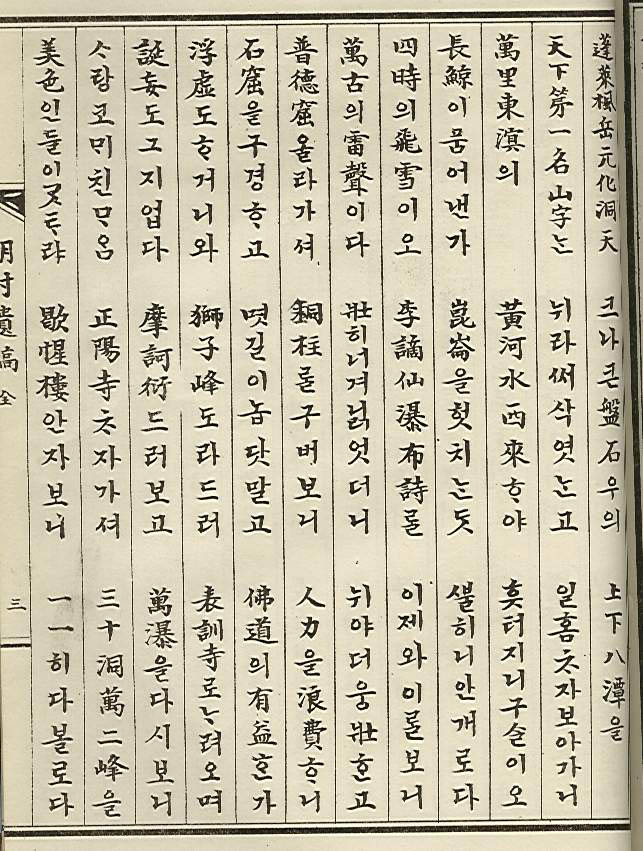 蓬萊楓岳元化洞天 크나큰盤石우의 上下八潭을
天下第一名山字는 뉘라써삭엿는고 일홈ᄎᆞ자보아가니
萬里東溟의 黃河水西來ᄒᆞ야 흣터지니구슬이오
長鯨이품어낸가 崑崙을헛치는듯 안개로다
四時의飛雪이오 李謫仙瀑布詩ᄅᆞᆯ 이제와이ᄅᆞᆯ보니
萬古의雷聲이다 壯히너겨닑엇더니 뉘야더웅壯ᄒᆞᆫ고
普德窟올라가셔 銅柱ᄅᆞᆯ구버보니 人力을浪費ᄒᆞ니
石窟을구경ᄒᆞ고 몃길이놉닷말고 佛道의有益ᄒᆞᆫ가
浮虛도ᄒᆞ거니와 獅子峰도라드러 表訓寺로ᄂᆞ려오며
誕妄도그지업다 摩訶衍드러보고 萬瀑을다시보니
ᄉᆞ랑코미친ᄆᆞᄋᆞᆷ 正陽寺ᄎᆞ자가셔 三十洞萬二峰을
美色인들이ᄀᆞᆺᄐᆞ랴 歇惺樓안자보니 一一히다볼로다
村遺稿 全 三